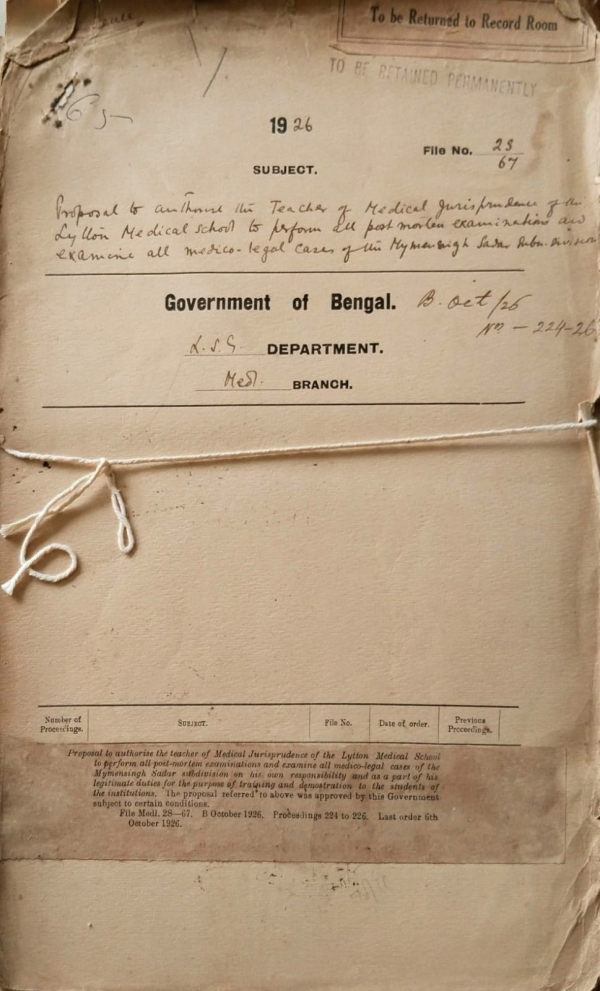 To be Returned to Record Room
TO BE RETAINED PERMANENTLY
65
1926
File No. 2S
67
SUBJECT.
Proposal to authorise the Teacher of Medical Jurisprudence of the
Lytton Medical School to perform all post mortem examinations and
examine all medico-legal cases of the Mymensingh Sadar Subn-division
Government of Bengal.
B. Oct/26
No - 224-26
L.S.G. DEPARTMENT.
Medl. BRANCH.
Number of Proceedings.
SUBJECT.
File No.
Date of order.
Previous Proceedings.
Proposal to authorise the teacher of Medical Jurisprudence of the Lytton Medical School
to perform all post-mortem examinations and examine all medico-legal cases of the
Mymensingh Sadar subdivision on his own responsibility and as a part of his
legitimate duties for the purpose of training and demostration to the students of
the institutions. The proposal referred to above was approved by this Government
subject to certain conditions.
File Medl. 2S—67. B October 1926. Proceedings 224 to 226. Last order 6th
October 1926.